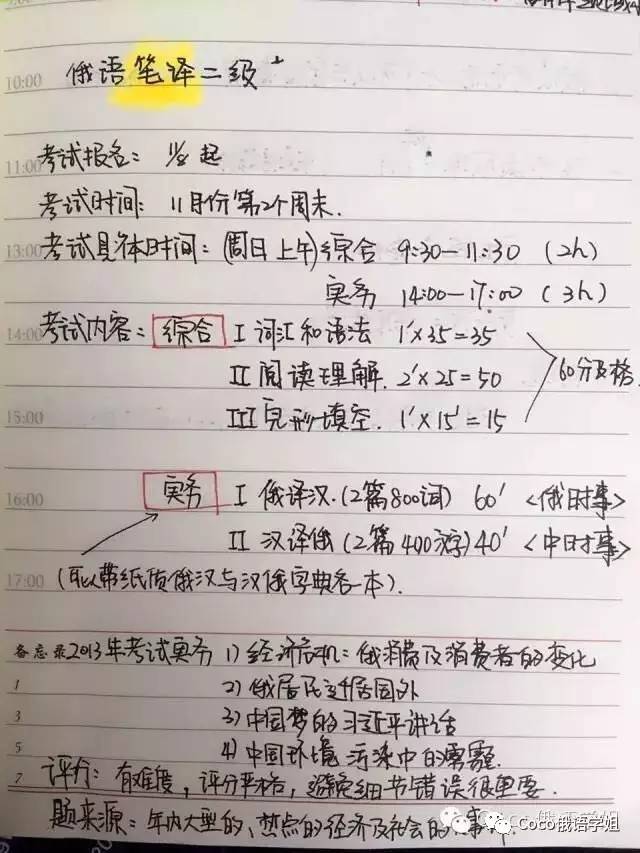 10:00 俄语笔译二级
11:00 考试报名： 起
考试时间： 11月份第2个周末.
13:00 考试具体时间：(周日 上午)综合 9:30-11:30 (2h)
实务 14:00-17:00 (3h)
14:00 考试内容： 综合 I 词汇和语法 1'×35=35
II 阅读理解. 2'×25=50 60分及格
15:00 III 完形填空. 1'×15'=15
16:00 实务 I 俄译汉.(2篇800词) 60' <俄时事>
II 汉译俄 (2篇400字) 40' <中时事>
17:00 (可以带纸质俄汉与汉俄字典各一本).
备忘录 2013年考试实务 1) 经济危机：俄消费及消费者的变化
1 2) 俄居民迁居国外
3 3) 中国梦的习近平讲话
5 4) 中国环境污染中的雾霾.
7 评分： 有难度，评分严格，避免细节错误很重要.
题来源：年内大型的、热点的经济及社会的事
Coco俄语学姐
Coco俄语学姐